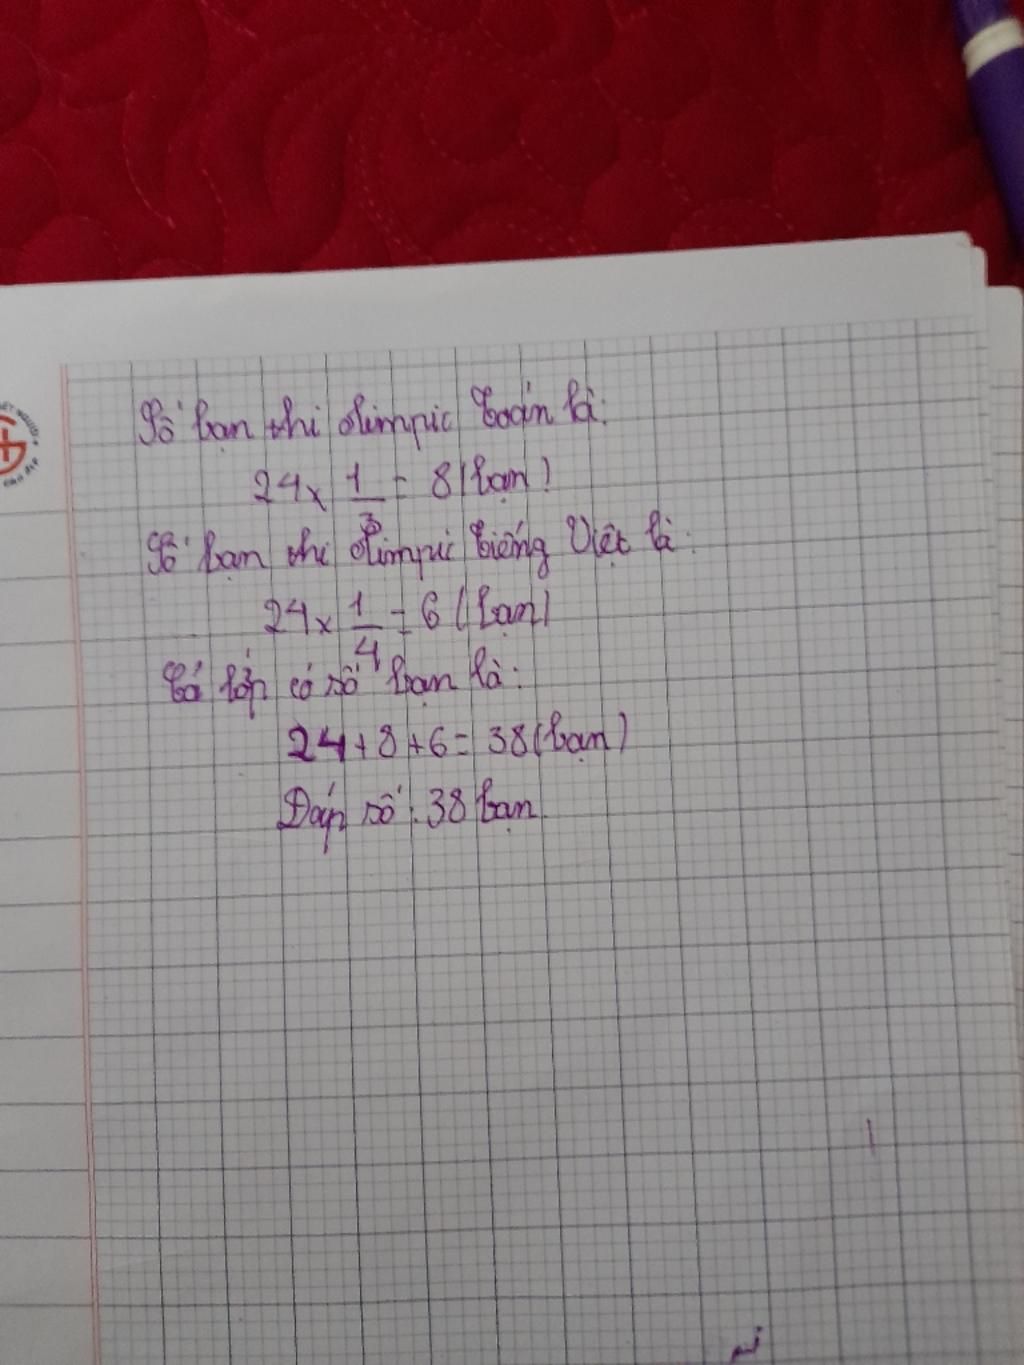 Số bạn thi olimpic Toán là:
24 x 1/3 = 8 (bạn)
Số bạn thi olimpic Tiếng Việt là:
24 x 1/4 = 6 (bạn)
Cả lớp có số bạn là:
24 + 8 + 6 = 38 (bạn)
Đáp số: 38 bạn.